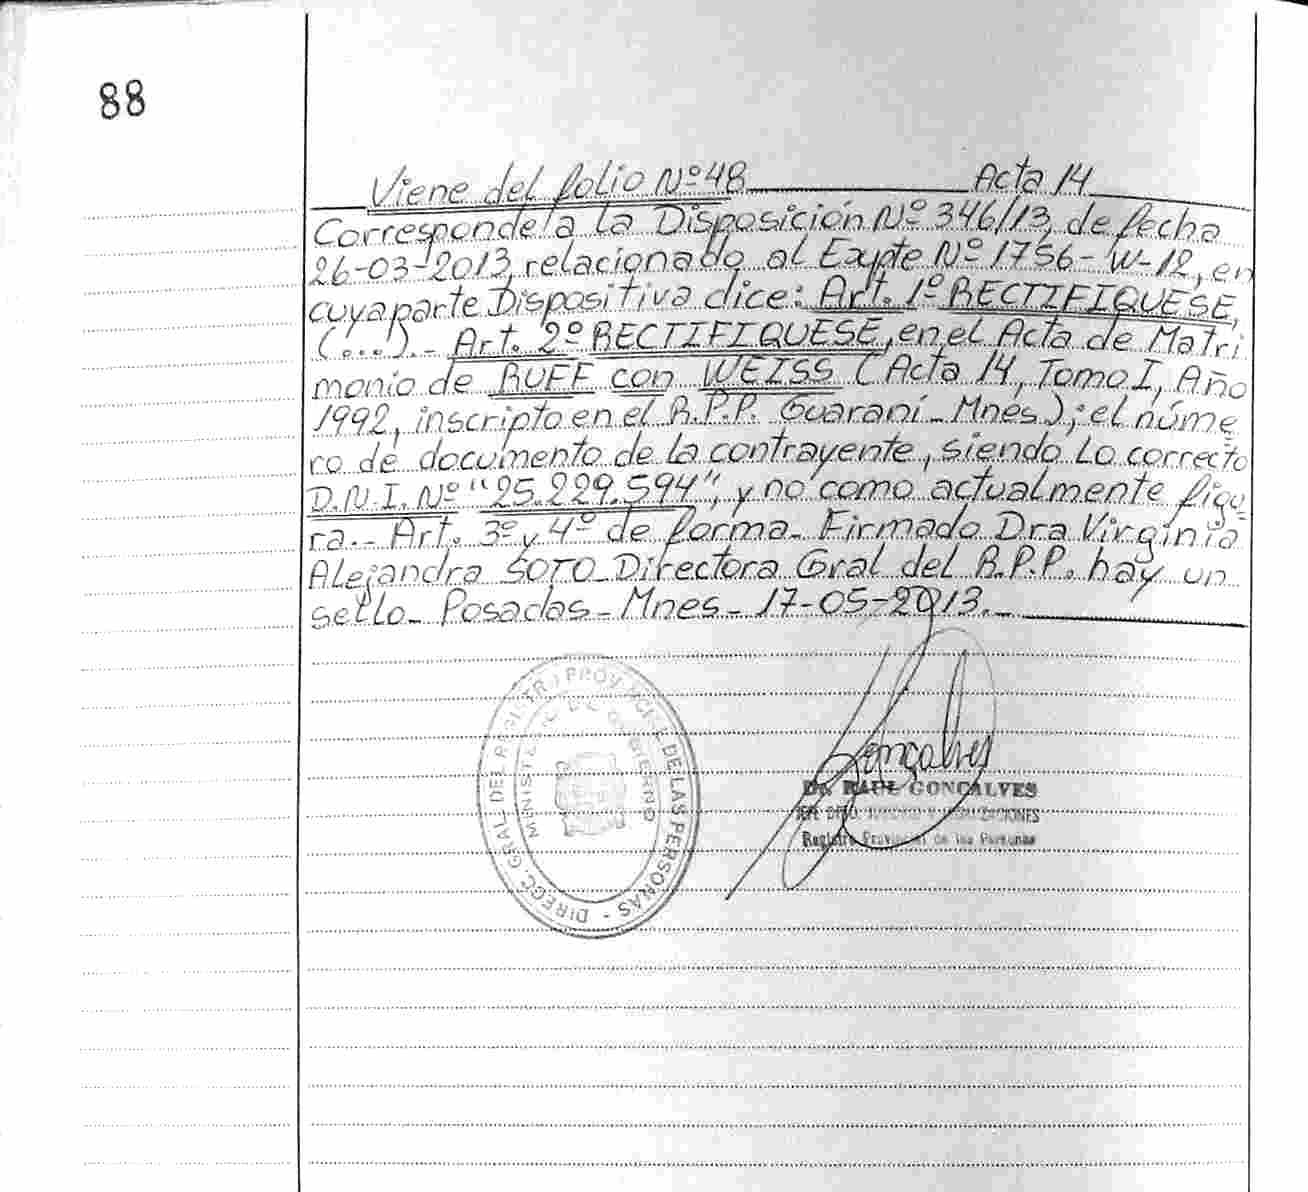 88
Viene del folio Nº 48 Acta 14
Corresponde a la Disposición Nº 346/13, de fecha
26-03-2013, relacionado al Expte Nº 1756-W-12, en
cuya parte Dispositiva dice: Art. 1º RECTIFIQUESE,
(....).- Art. 2º RECTIFIQUESE, en el Acta de Matri
monio de RUFF con WEISS (Acta 14, Tomo I, Año
1992, inscripto en el R.P.P. Guaraní - Mnes); el núme
ro de documento de la contrayente, siendo Lo correcto
D.N.I. Nº "25.229.594", y no como actualmente figu
ra.- Art. 3º y 4º de forma. Firmado Dra Virginia
Alejandra SOTO - Directora Gral del R.P.P. hay un
sello - Posadas - Mnes - 17-05-2013.-
DIRECC. GRAL. DEL REGISTRO PROVINCIAL DE LAS PERSONAS -
MINISTERIO DE GOBIERNO
Goncalves
Dr. RAUL GONCALVES
JEFE DPTO. Y
Registro Provincial de las Personas